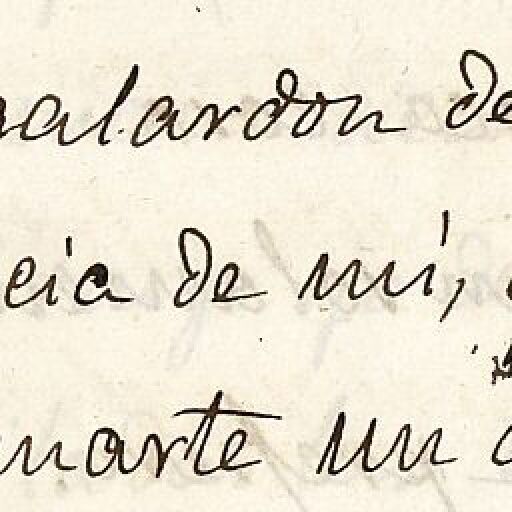 alardon de
eia de mí,
marte un